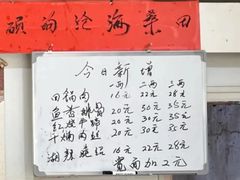 硕初沧海桑田
今日新增
一两 二两 三两
回锅肉 16元 22元 28元
鱼香排骨 20元 30元 35元
红烧牛 20元 30元 35元
干煸肉丝 20元 30元 35元
16元 22元 28元
宽面加2元